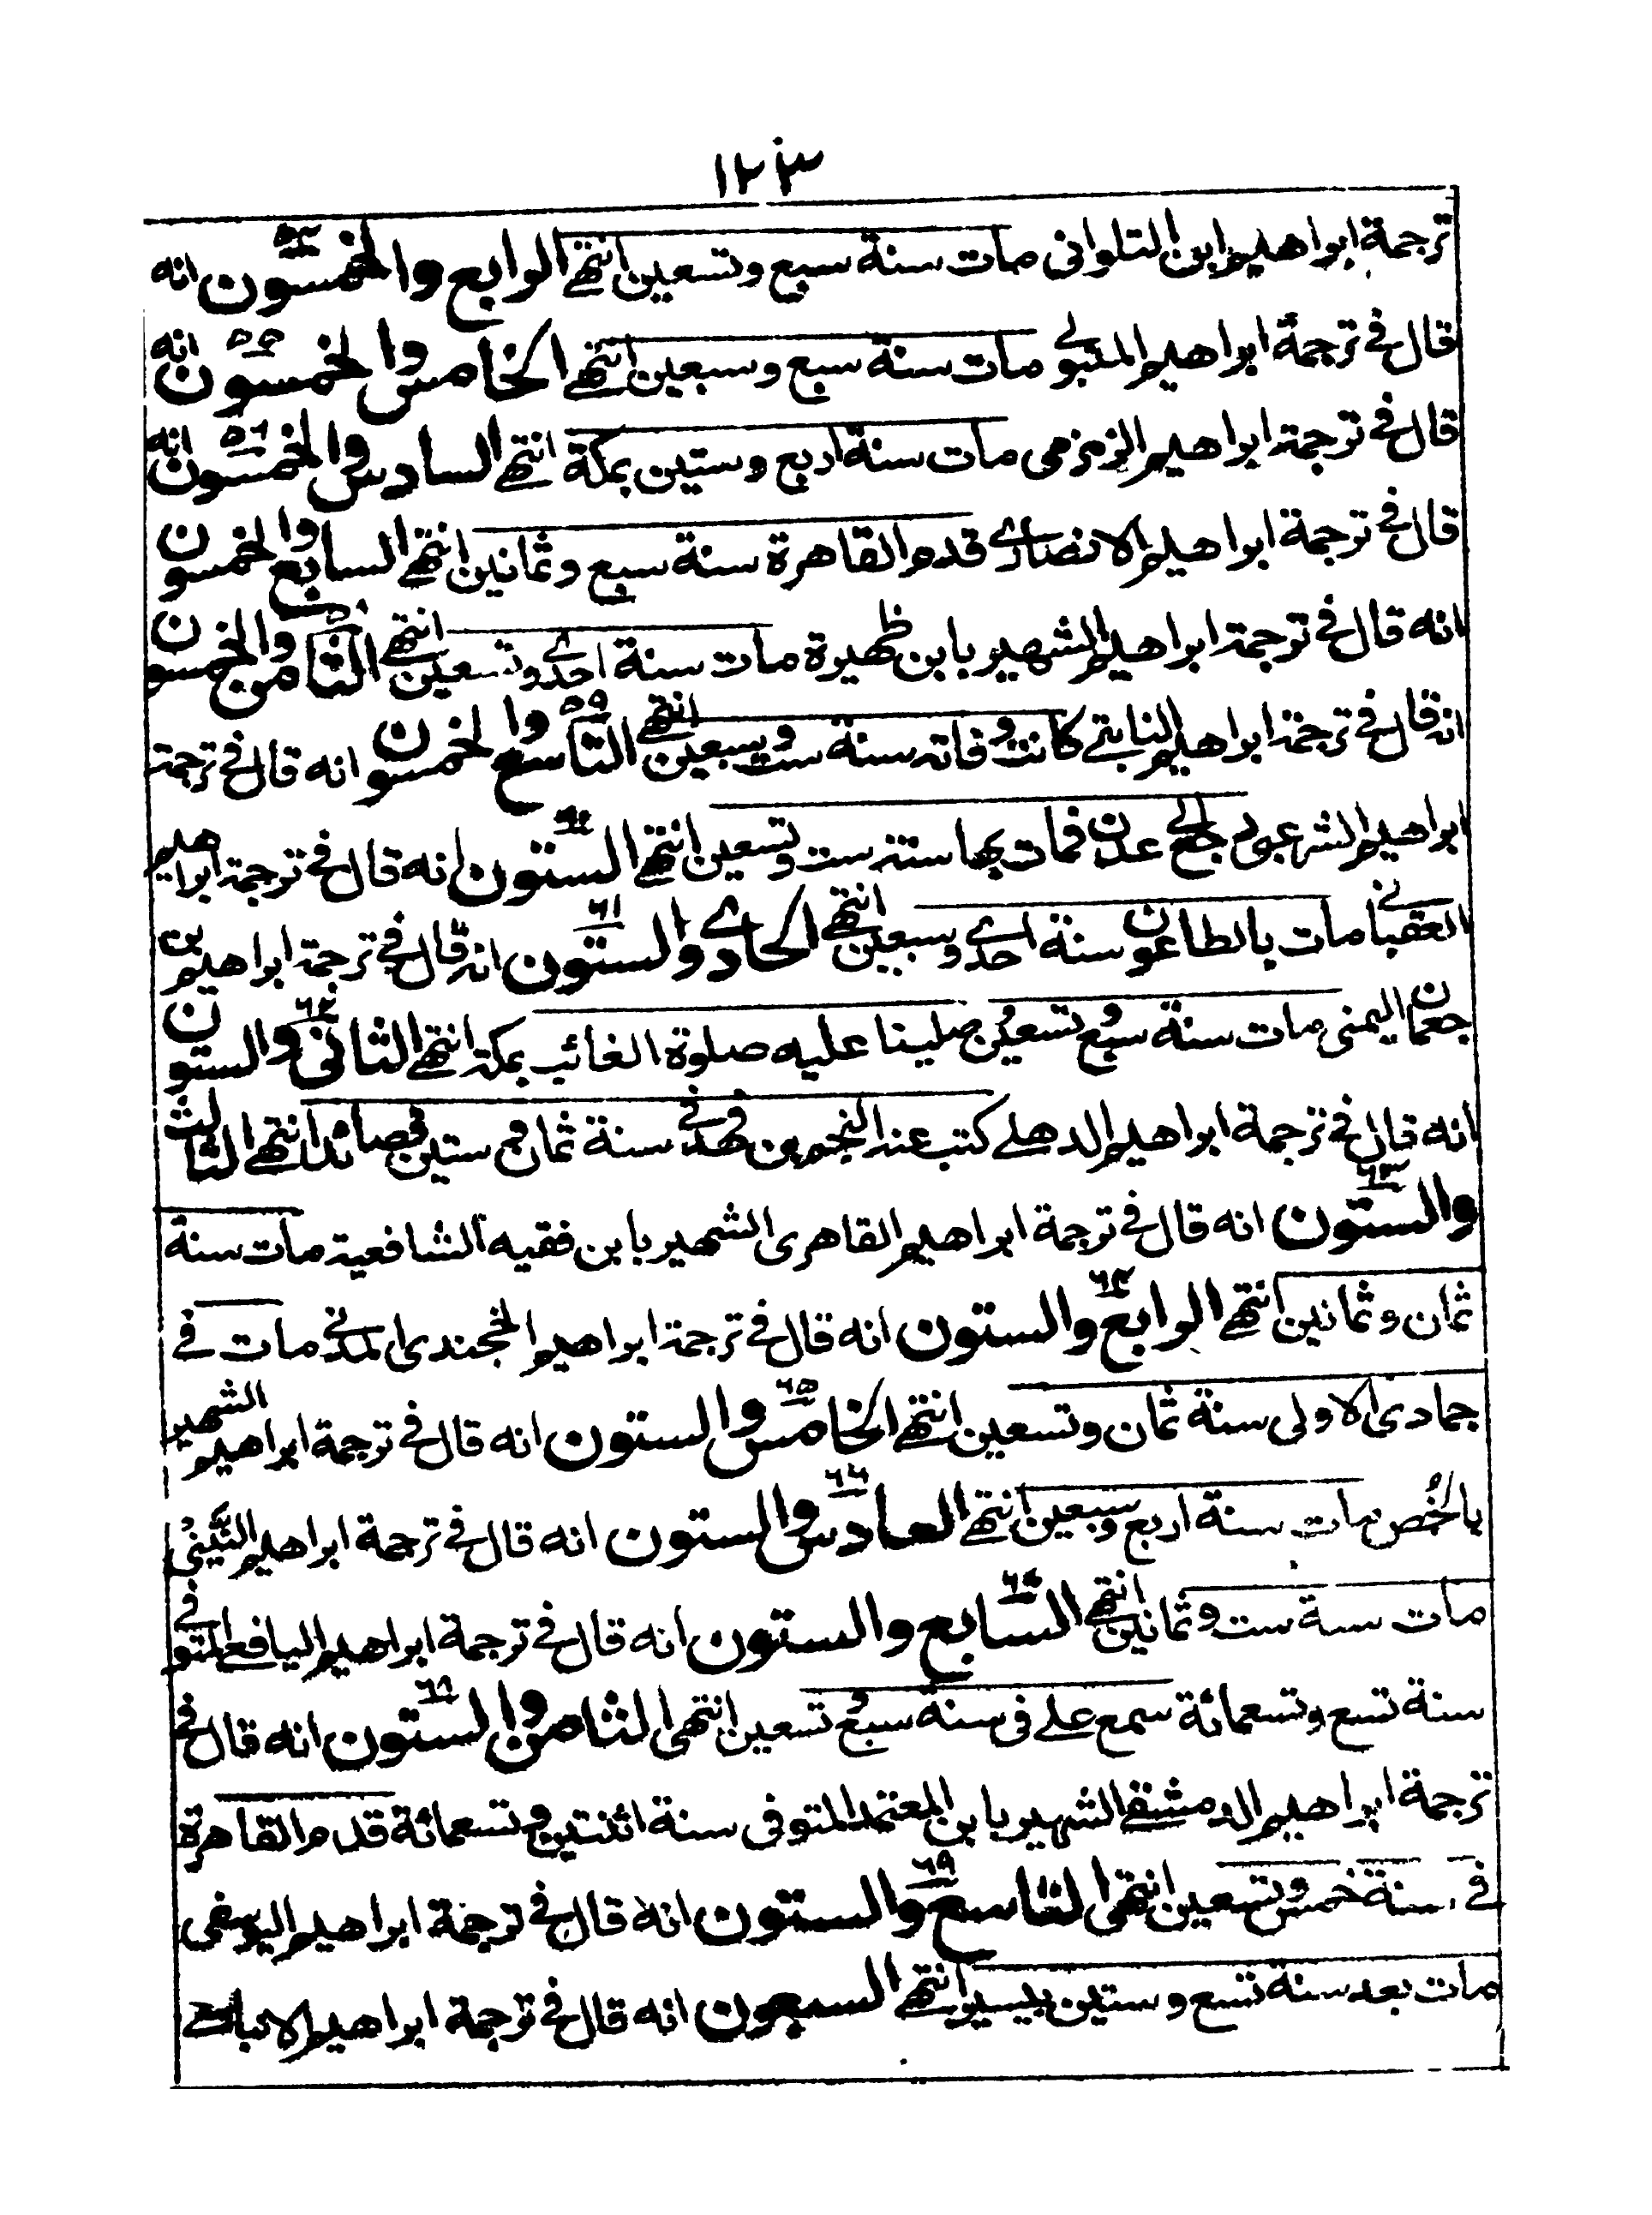 ١٢٣
ترجمة ابراهيم ابن التلوانى مات سنة سبع وتسعين انتهے الرابع والخمسون انه
قال فے ترجمة ابراهيم المتبولے مات سنة سبع وسبعين انتهے الخامس والخمسون انه
قال فے ترجمة ابراهيم الزمزمى مات سنة اربع وستين بمكة انتهے السادس والخمسون انه
قال فے ترجمة ابراهيم الانصارے قدم القاهرة سنة سبع وثمانين انتهے السابع والخمسون
انه قال فے ترجمة ابراهيم الشهير بابن ظهيرة مات سنة احدے وتسعين انتهے الثامن والخمسون
انه قال فے ترجمة ابراهيم النابتے كانت وفاته سنة ست وسبعين انتهے التاسع والخمسون انه قال فے ترجمة
ابراهيم الشرعبى الے عدن فمات بها سنة ست وتسعين انتهے الستون انه قال فے ترجمة ابراهيم
العقبانے مات بالطاعون سنة احدے وسبعين انتهے الحادے والستون انه قال فے ترجمة ابراهيم بن
جعمان اليمنى مات سنة سبع وتسعين صلينا عليه صلوة الغائب بمكة انتهے الثانى والستون
انه قال فے ترجمة ابراهيم الدهلے كتب عند النجم بن فهد فے سنة ثمان وستين قصائد انتهے الثالث
والستون انه قال فے ترجمة ابراهيم القاهرى الشهير بابن فقيه الشافعية مات سنة
ثمان وثمانين انتهے الرابع والستون انه قال فے ترجمة ابراهيم الخجندى المدنے مات فے
جمادى الاولى سنة ثمان وتسعين انتهے الخامس والستون انه قال فے ترجمة ابراهيم الشهير
بالخص مات سنة اربع وسبعين انتهے السادس والستون انه قال فے ترجمة ابراهيم
مات سنة ست وثمانين انتهے السابع والستون انه قال فے ترجمة ابراهيم اليافعے المتوفے
سنة تسع وتسعمائة سمع علے فى سنة سبع وتسعين انتهى الثامن والستون انه قال فے
ترجمة ابراهيم الدمشقے الشهير بابن المعتمد المتوفى سنة اثنتين وتسعمائة قدم القاهرة
فے سنة خمس وتسعين انتهى التاسع والستون انه قال فے ترجمة ابراهيم اليوسفى
مات بعد سنة تسع وستين بيسير انتهے السبعون انه قال فے ترجمة ابراهيم